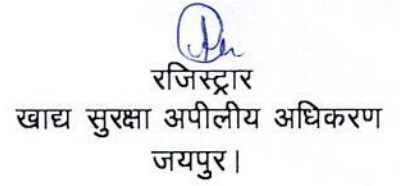 रजिस्ट्रार
खाद्य सुरक्षा अपीलीय अधिकरण
जयपुर।